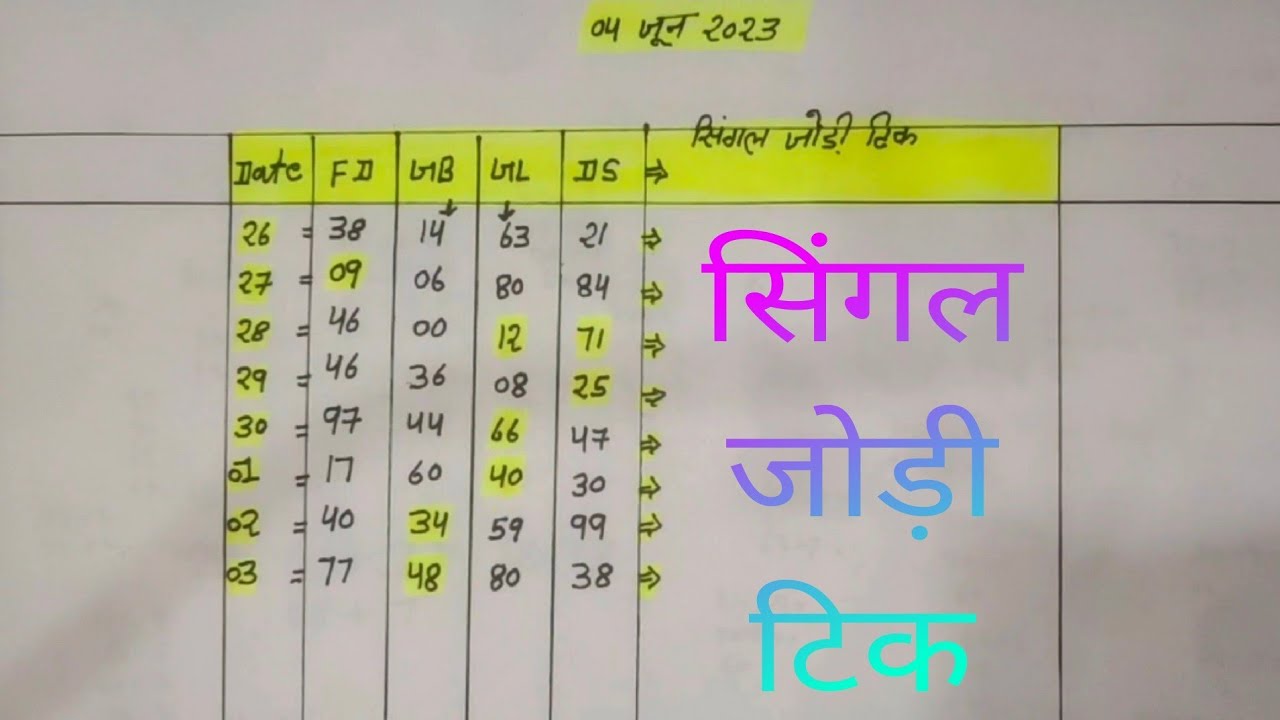 04 जून 2023
सिंगल जोड़ी टिक
Date FD GB GL DS ⇒
26 = 38 14 63 21 ⇒
27 = 09 06 80 84 ⇒
28 = 46 00 12 71 ⇒
29 = 46 36 08 25 ⇒
30 = 97 44 66 47 ⇒
01 = 17 60 40 30 ⇒
02 = 40 34 59 99 ⇒
03 = 77 48 80 38 ⇒
सिंगल
जोड़ी
टिक